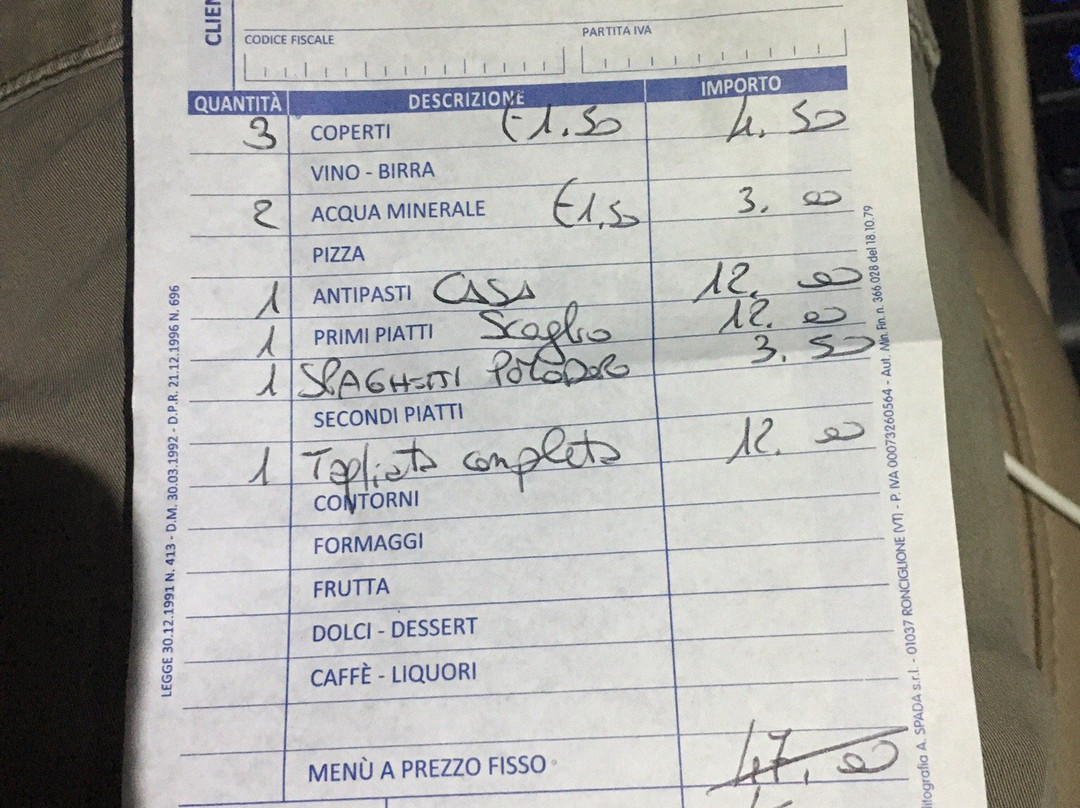 CLIEN
CODICE FISCALE PARTITA IVA
QUANTITÀ DESCRIZIONE IMPORTO
3 COPERTI €1.50 4.50
VINO - BIRRA
2 ACQUA MINERALE €1,50 3.00
PIZZA
1 ANTIPASTI CASA 12.00
1 PRIMI PIATTI Scoglio 12.00
1 SPAGHETTI POMODORO 3.50
SECONDI PIATTI
1 Tagliata completa 12.00
CONTORNI
FORMAGGI
FRUTTA
DOLCI - DESSERT
CAFFÈ - LIQUORI
MENÙ A PREZZO FISSO 47,00
LEGGE 30.12.1991 N. 413 - D.M. 30.03.1992 - D.P.R. 21.12.1996 N. 696
litografia A. SPADA s.r.l. - 01037 RONCIGLIONE (VT) - P. IVA 00073260564 - Aut. Min. Fin. n. 366.028 del 18.10.79